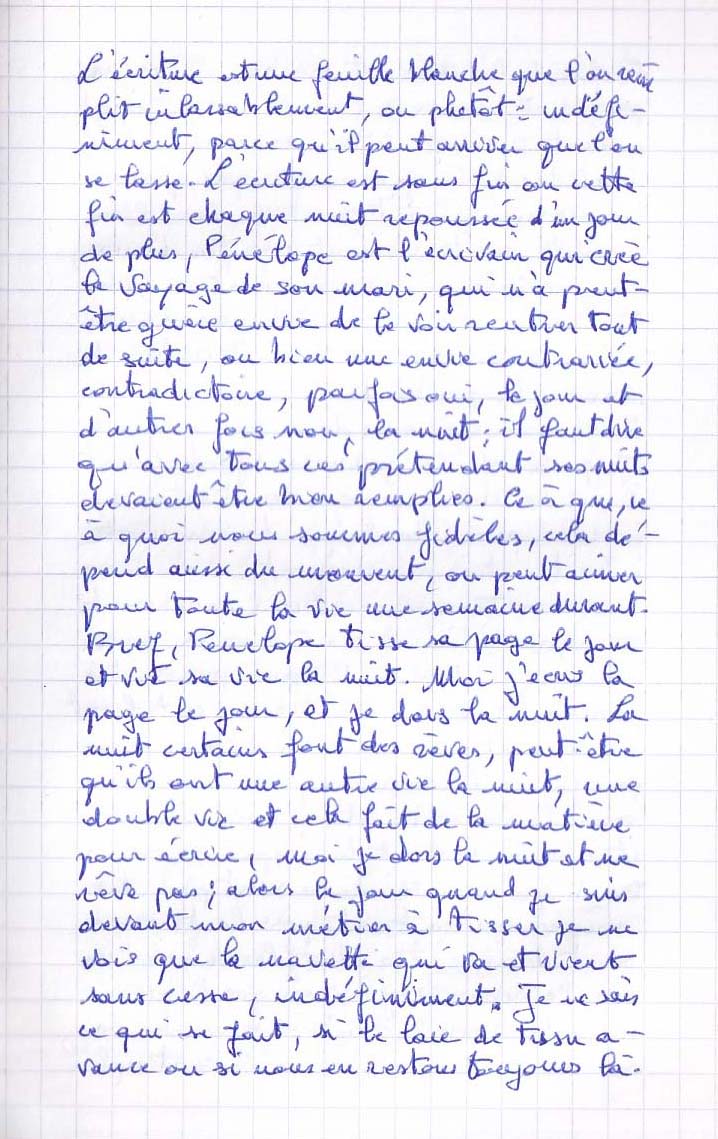 L'écriture est une feuille blanche que l'on rem
plit inlassablement, ou plutôt : indéfi-
niment, parce qu'il peut arriver que l'on
se lasse. L'écriture est sans fin ou cette
fin est chaque nuit repoussée d'un jour
de plus, Pénélope est l'écrivain qui crée
le voyage de son mari, qui n'a peut-
être guère envie de le voir rentrer tout
de suite, ou bien une envie contrariée,
contradictoire, parfois oui, le jour et
d'autres fois non, la nuit ; il faut dire
qu'avec tous ces prétendant ses nuits
devaient être bien remplies. Ce à que, ce
à quoi nous sommes fidèles, cela dé-
pend aussi du moment, on peut aimer
pour toute la vie une semaine durant.
Bref, Penelope tisse sa page le jour
et vit sa vie la nuit. Moi j'écris la
page le jour, et je dors la nuit. La
nuit certains font des rêves, peut-être
qu'ils ont une autre vie la nuit, une
double vie et cela fait de la matière
pour écrire, moi je dors la nuit et ne
rêve pas ; alors le jour quand je suis
devant mon métier à tisser je ne
vois que la navette qui va et vient
sans cesse, indéfiniment. Je ne sais
ce qui se fait, si le laie de tissu a-
vance ou si nous en restons toujours là.